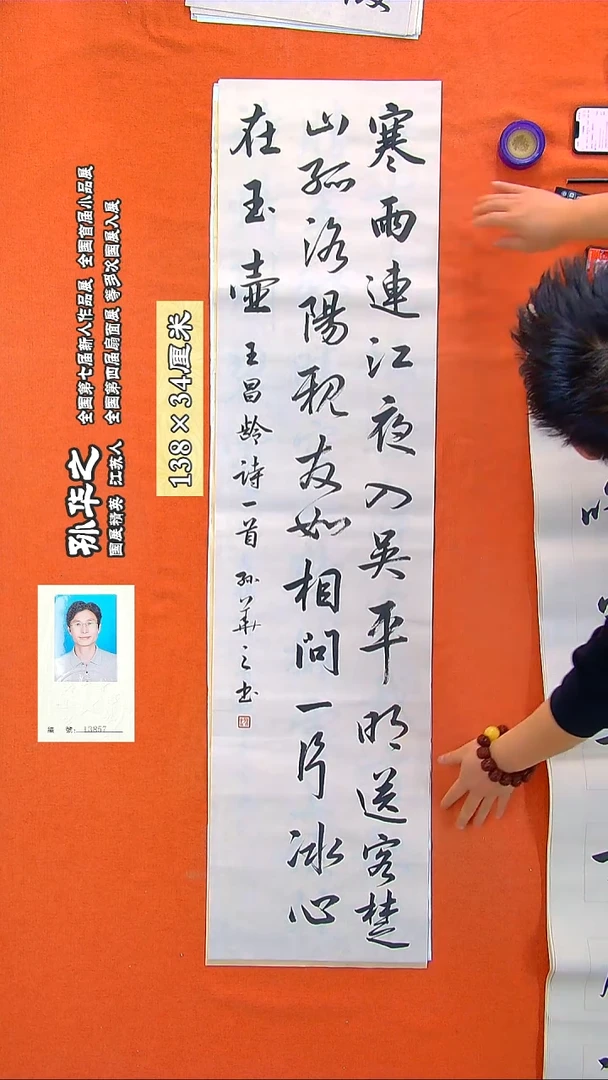 寒雨連江夜入吴平明送客楚
山孤洛陽親友如相问一片冰心
在玉壺
王昌龄诗一首 孙華之书
138×34厘米
孙华之
国展精英 江苏人
全国第七届新人作品展 全国首届小品展
全国第四届扇面展 等多次国展入展
編 號: 13857